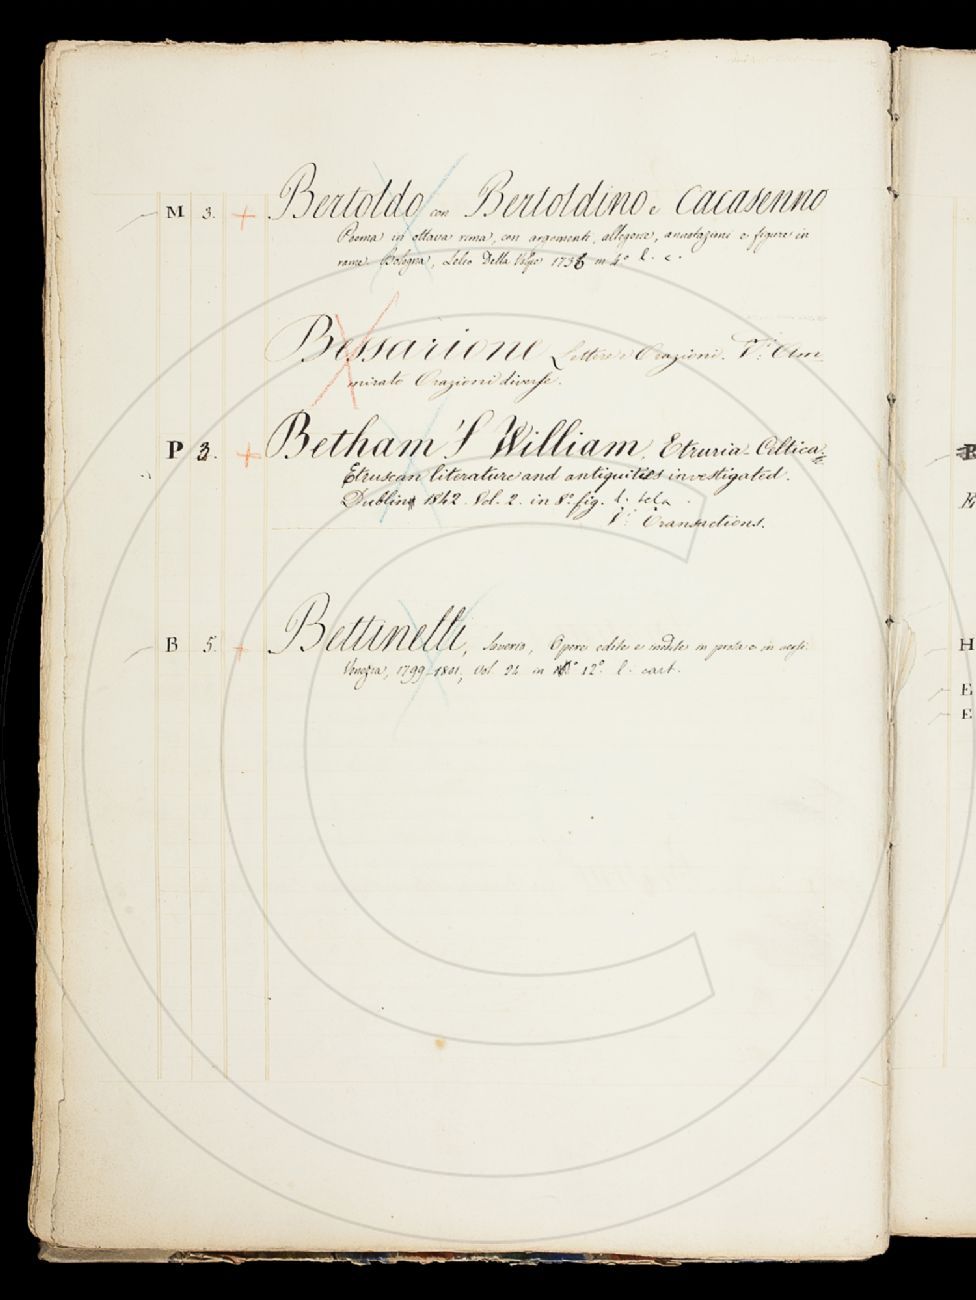 M 3. + Bertoldo con Bertoldino e Cacasenno
Poema in ottava rima, con argomenti, allegorie, annotazioni e figure in
rame. Bologna, Lelio Della Volpe 1736 in 4° l. c.
Bessarione Lettere e Orazioni. V. Am
mirato Orazioni diverse.
P 3. + Betham S William. Etruria-Celtica
Etruscan literature and antiquities investigated.
Dublin 1842. Vol. 2. in 8° fig. l. tela
V. Transactions.
B 5. + Bettinelli, Saverio, Opere edite e inedite in prosa e in versi.
Venezia, 1799-1801, Vol. 24 in 12° l. cart.
P
E
H
E
E